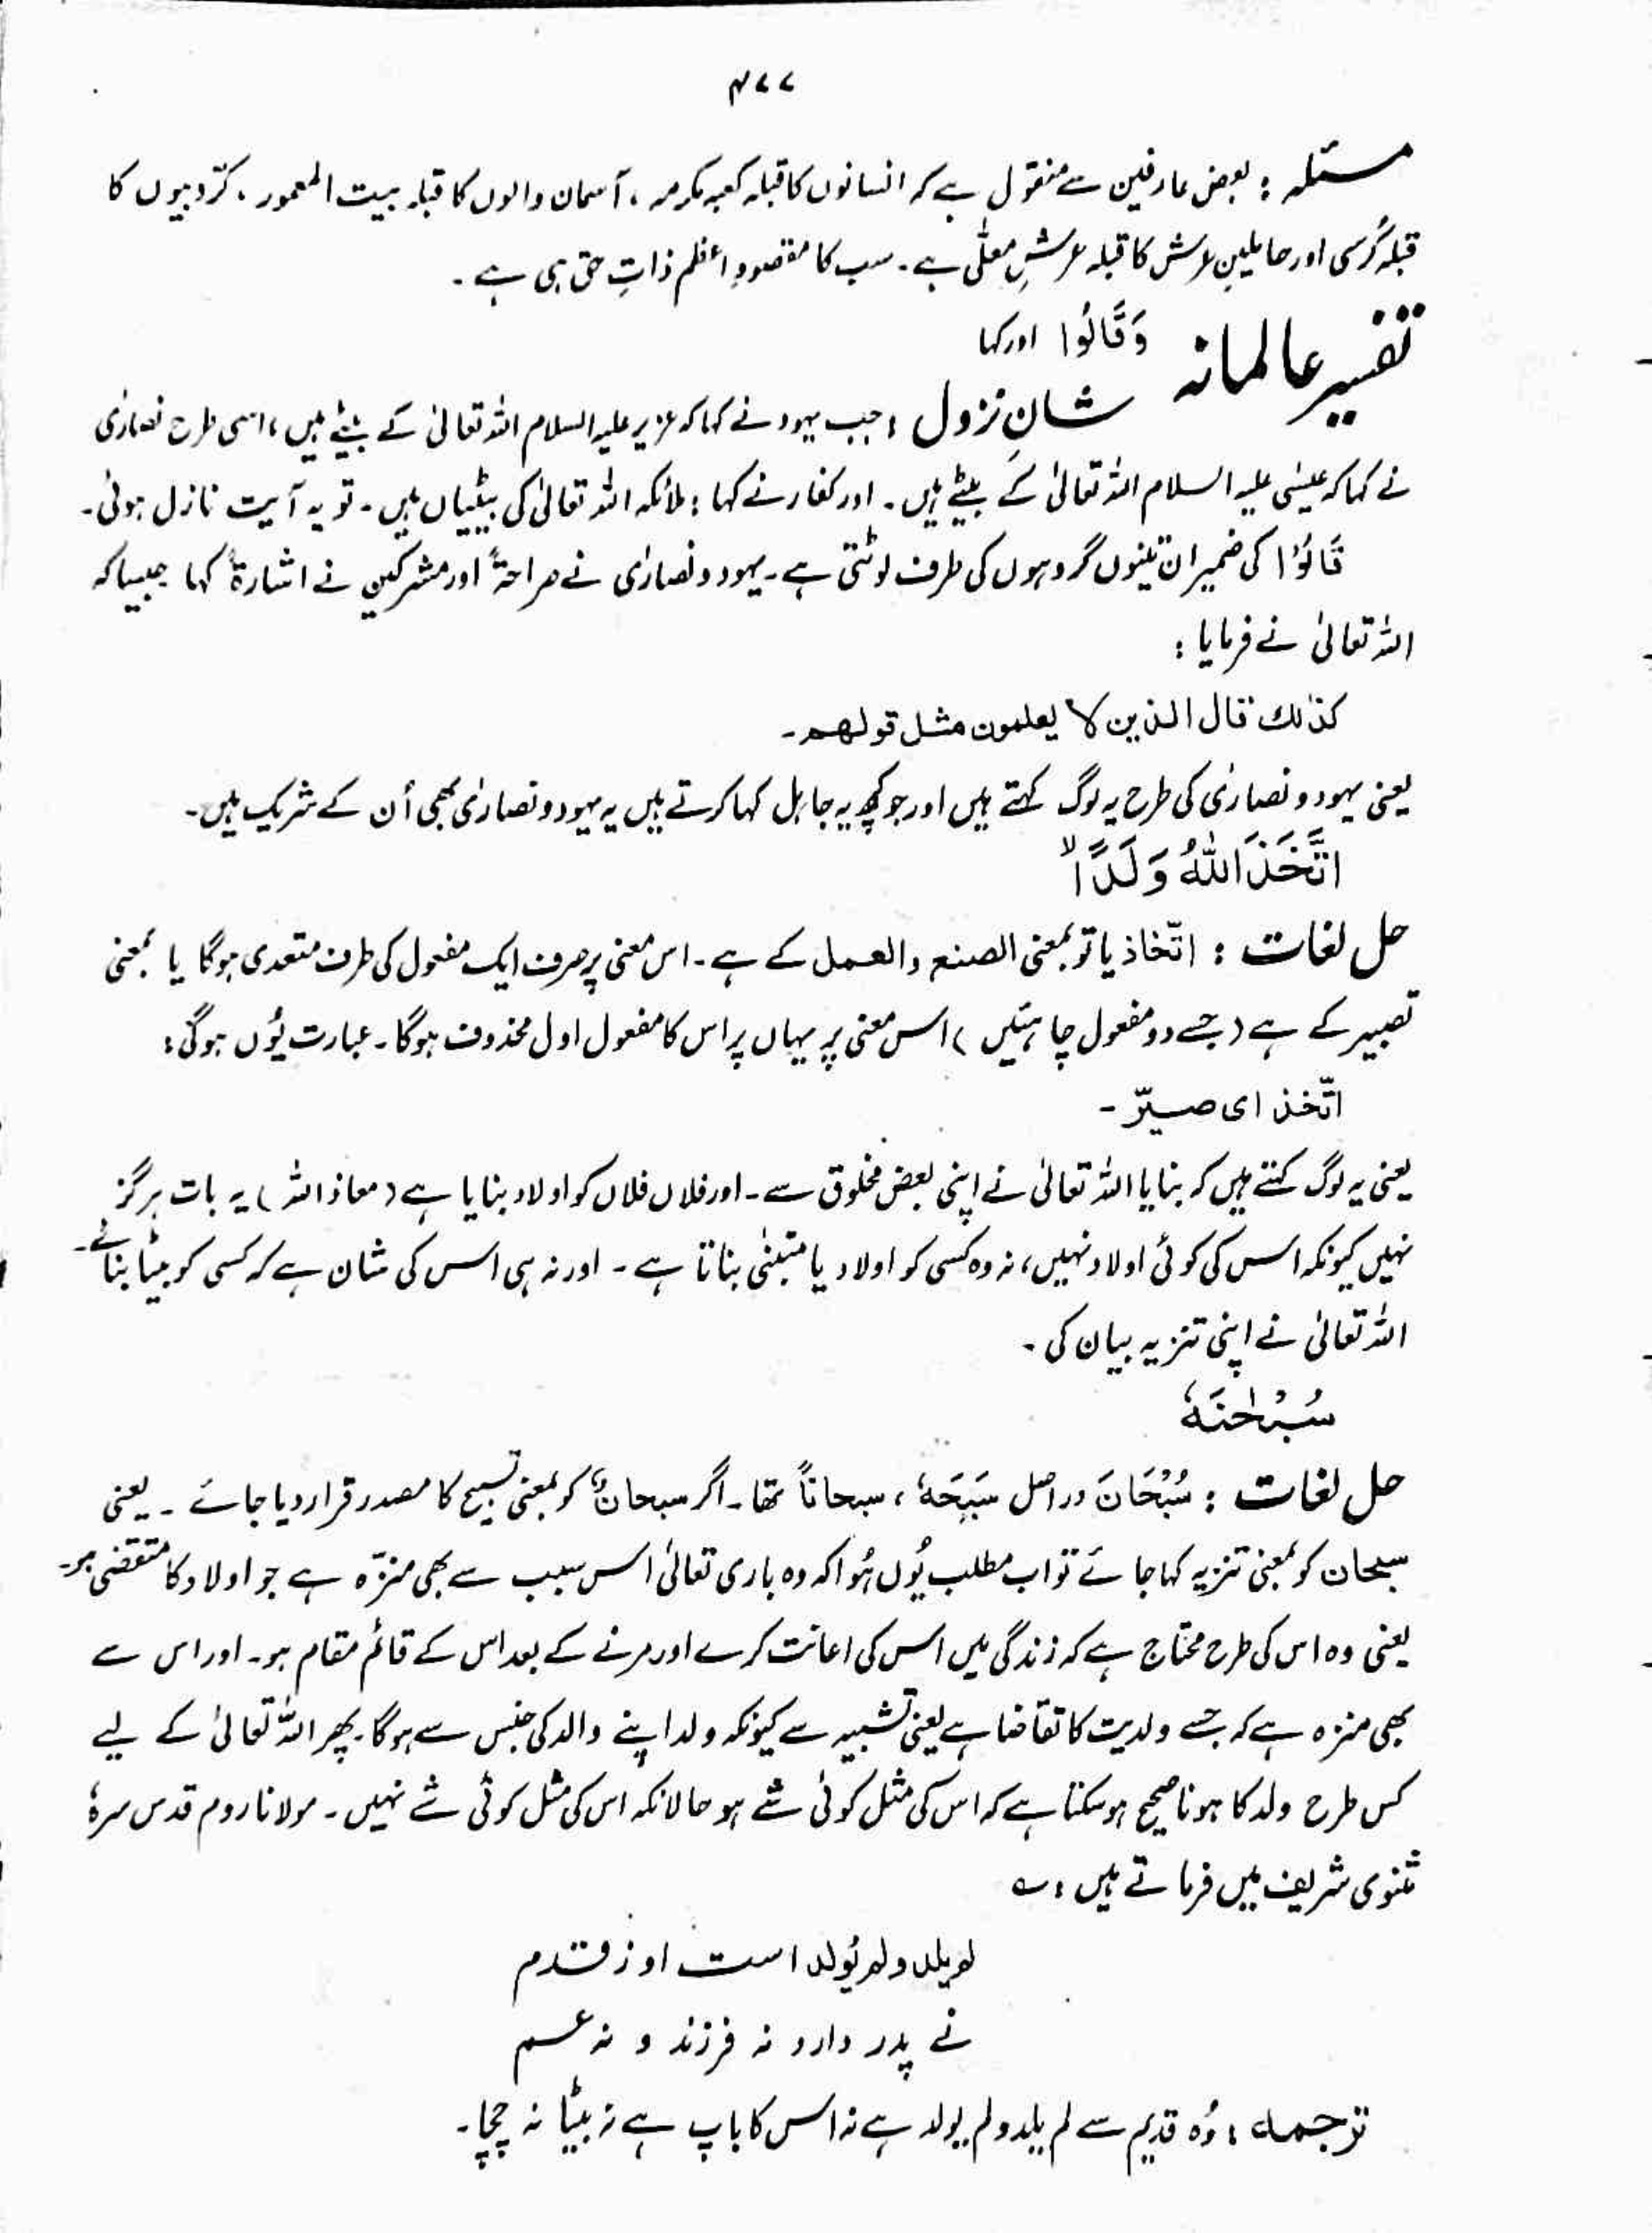 ۴۷۷
مسئلہ : بعض عارفین سے منقول ہے کہ انسانوں کا قبلہ کعبہ مکرمہ ، آسمان والوں کا قبلہ بیت المعمور ۔ کرّوبیوں کا
قبلہ کُرسی اور حاملینِ عرش کا قبلہ عرشِ معلّٰی ہے ۔ سب کا مقصودِ اعظم ذاتِ حق ہی ہے ۔
تفسیر عالمانہ وَقَالُوا اور کہا
شانِ نزول : جب یہود نے کہا کہ عزیر علیہ السلام اللہ تعالیٰ کے بیٹے ہیں ، اسی طرح نصارٰی
نے کہا کہ عیسٰی علیہ السلام اللہ تعالیٰ کے بیٹے ہیں ۔ اور کفار نے کہا : ملائکہ اللہ تعالیٰ کی بیٹیاں ہیں ۔ تو یہ آیت نازل ہوئی ۔
قَالُوْا کی ضمیر ان تینوں گروہوں کی طرف لوٹتی ہے ۔ یہود و نصارٰی نے صراحۃً اور مشرکین نے اشارۃً کہا جیسا کہ
اللہ تعالیٰ نے فرمایا :
کذٰلك قال الذین لا یعلمون مثل قولھم ۔
یعنی یہود و نصارٰی کی طرح یہ لوگ کہتے ہیں اور جو کچھ یہ جاہل کہا کرتے ہیں یہ یہود و نصارٰی بھی اُن کے شریک ہیں ۔
اتَّخَذَ اللّٰهُ وَلَدًا ۙ
حل لغات : اتّخاذ یا تو بمعنی الصنع والعمل کے ہے ۔ اس معنی پر صرف ایک مفعول کی طرف متعدی ہوگا یا بمعنی
تصییر کے ہے ( جسے دو مفعول چاہئیں ) اس معنی پر یہاں پر اس کا مفعول اول محذوف ہوگا ۔ عبارت یُوں ہوگی :
اتّخذ ای صیّر ۔
یعنی یہ لوگ کہتے ہیں کہ بنایا اللہ تعالیٰ نے اپنی بعض مخلوق سے ۔ اور فلاں فلاں کو اولاد بنایا ہے ( معاذ اللہ ) یہ بات ہرگز
نہیں کیونکہ اس کی کوئی اولاد نہیں ، نہ وہ کسی کو اولاد یا متبنٰی بناتا ہے ۔ اور نہ ہی اس کی شان ہے کہ کسی کو بیٹا بنائے ۔
اللہ تعالیٰ نے اپنی تنزیہ بیان کی ۔
سُبْحٰنَهٗ
حل لغات : سُبْحَانَ دراصل سَبَحَهٗ ، سبحاناً تھا ۔ اگر سبحانٌ کو بمعنی تسبیح کا مصدر قرار دیا جائے ۔ یعنی
سبحان کو بمعنی تنزیہ کہا جائے تو اب مطلب یُوں ہُوا کہ وہ باری تعالیٰ اس سبب سے بھی منزّہ ہے جو اولاد کا متقضی ہو ۔
یعنی وہ اس کی طرح محتاج ہے کہ زندگی میں اس کی اعانت کرے اور مرنے کے بعد اس کے قائم مقام ہو ۔ اور اس سے
بھی منزہ ہے کہ جسے ولدیت کا تقاضا ہے یعنی تشبیہ سے کیونکہ ولد اپنے والد کی جنس سے ہوگا ۔ پھر اللہ تعالیٰ کے لیے
کس طرح ولد کا ہونا صحیح ہو سکتا ہے کہ اس کی مثل کوئی شے ہو حالانکہ اس کی مثل کوئی شے نہیں ۔ مولانا روم قدس سرہٗ
مثنوی شریف میں فرماتے ہیں : ؎
لم یلد ولم یُولد است او ز قدم
نے پدر دارد نہ فرزند و نہ عم
ترجمہ : وُہ قدیم سے لم یلد ولم یولد ہے نہ اس کا باپ ہے نہ بیٹا نہ چچا ۔